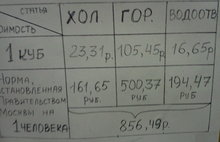 СТАТЬЯ ХОЛ ГОР. ВОДООТВ
ОИМОСТЬ
1 КУБ 23,31р. 105,45р. 16,65р
НОРМА,
УСТАНОВЛЕННАЯ 161,65 500,37 194,47
ПРАВИТЕЛЬСТВОМ РУБ. РУБ РУБ.
МОСКВЫ НА
1 ЧЕЛОВЕКА 856,49р.